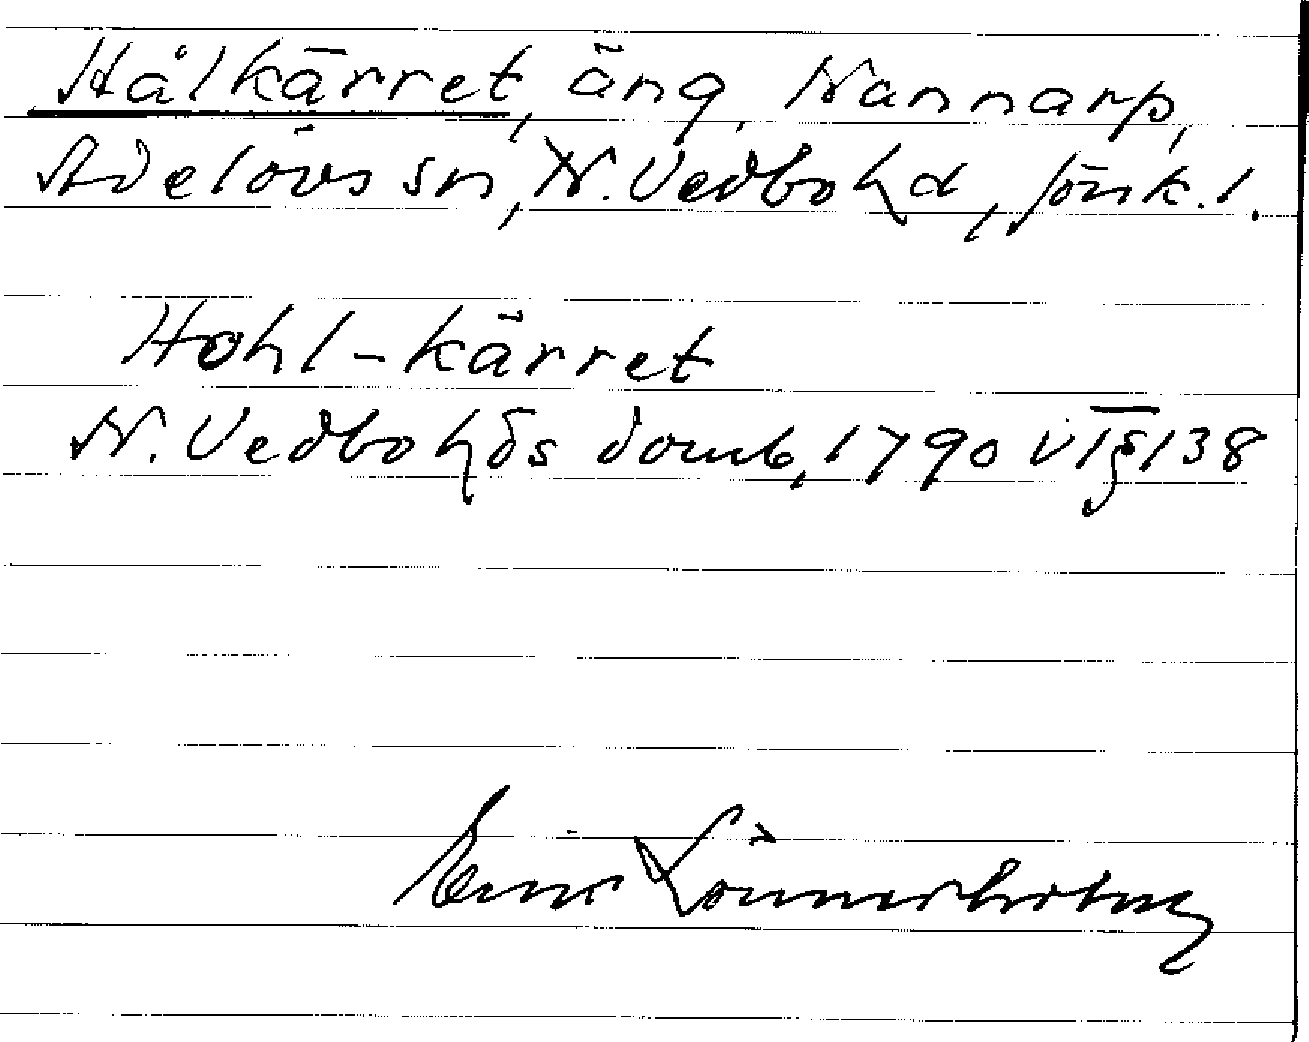 Hålkärret, äng, Nannarp,
Adelövs sn, N. Vedbo hd, Jönk. l.
Hohl-kärret
N. Vedbo hds domb, 1790 VI § 138
Einar Lönnerholm